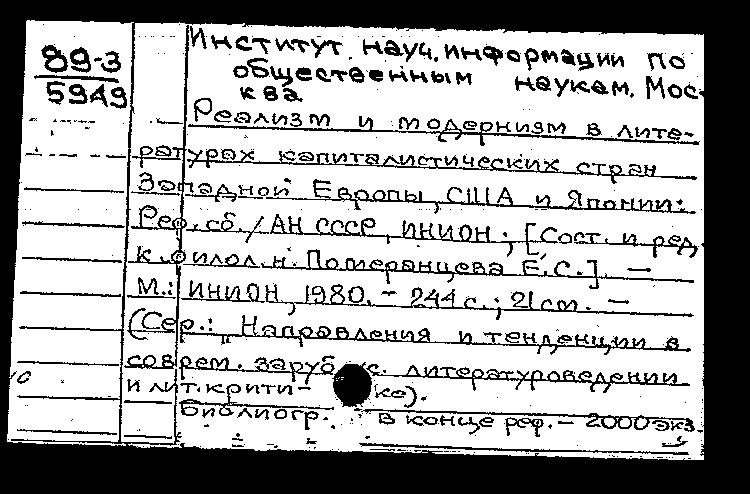 89-3
5949
Институт науч. информации по
общественным наукам. Мос-
ква
Реализм и модернизм в лите-
ратурах капиталистических стран
Западной Европы, США и Японии:
Реф. сб. / АН СССР, ИНИОН; [Сост. и ред.
к. филол. н. Померанцева Е.С.]. —
М.: ИНИОН, 1980. - 244 с.; 21 см. —
(Сер.: „Направления и тенденции в
соврем. заруб. литературоведении
и лит. крити- ке).
Библиогр. в конце реф. - 2000 экз.